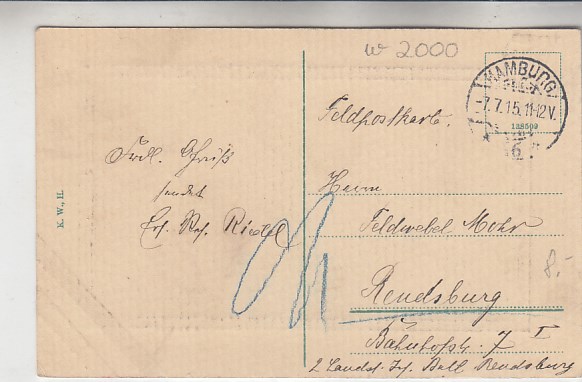 w 2000
HAMBURG
-7.7.15. 11-12 V.
* 6 *
138509
Feldpostkarte.
Frdl. Gruß
sendet
Ers. Res. Riedel
Herrn
Feldwebel Mohr
Rendsburg
Bahnhofstr. 7 I
2 Landst. Inf. Batl. Rendsburg
8.-
K. W., H.